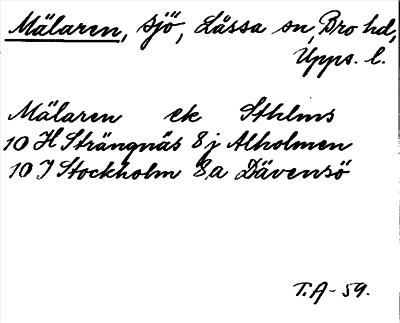 Mälaren, sjö, Låssa sn, Bro hd,
Upps. l.
Mälaren ek Sthlms
10 H Strängnäs 8 j Alholmen
10 I Stockholm 8 a Dävensö
T.A - 59.